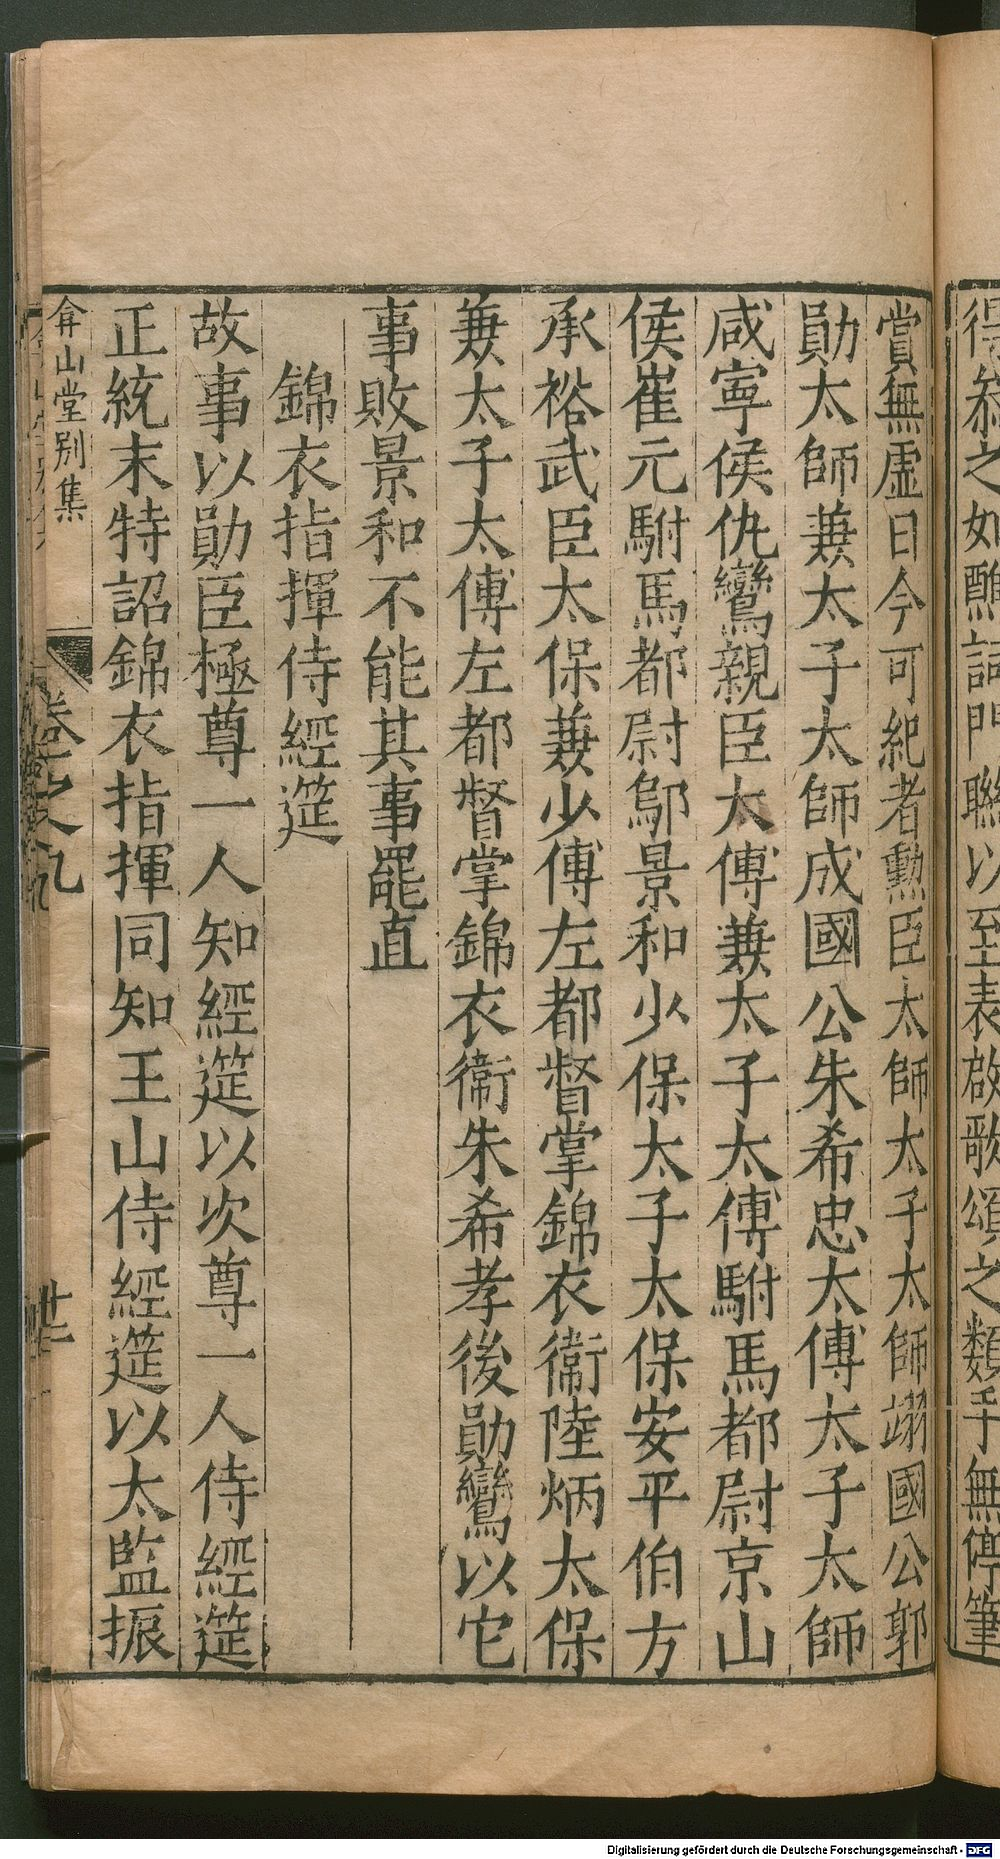 得叅之如醮詞門聯以至表啟歌頌之類手無停筆
賞無虛日今可紀者勲臣太師太子太師翊國公郭
勛太師兼太子太師成國公朱希忠太傅太子太師
咸寧侯仇鸞親臣太傅兼太子太傅駙馬都尉京山
侯崔元駙馬都尉鄔景和少保太子太保安平伯方
承裕武臣太保兼少傅左都督掌錦衣衞陸炳太保
兼太子太傅左都督掌錦衣衞朱希孝後勛鸞以它
事敗景和不能其事罷直
錦衣指揮侍經筵
故事以勛臣極尊一人知經筵以次尊一人侍經筵
正統末特詔錦衣指揮同知王山侍經筵以太監振
弇山堂別集
卷之九
廿二
Digitalisierung gefördert durch die Deutsche Forschungsgemeinschaft - DFG